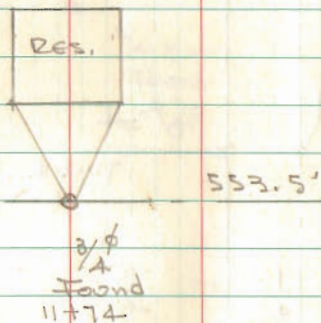 RES.
553.5'
3/4 ϕ
Found
11+74